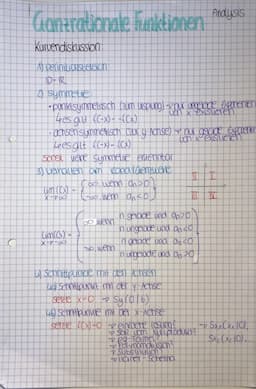 Analysis
Ganzrationale Funktionen
Kurvendiskussion
1) Definitionsbereich
D=ℝ
2) Symmetrie
• punktsymmetrisch (zum Ursprung) → nur ungerade Exponenten von x existieren
↳ es gilt f(-x) = -f(x)
• achsensymmetrisch (zur y-Achse) → nur gerade Exponenten von x existieren
↳ es gilt f(-x) = f(x)
sonst: keine Symmetrie erkennbar
3) Verhalten am
lim f(x) = { ∞, wenn an>0
x→+∞ { -∞, wenn an<0
II I
III IV
lim f(x) =
x→-∞
∞, wenn
n gerade und an>0
n ungerade und an<0
-∞, wenn
n gerade und an<0
n ungerade und an>0
4) Schnittpunkte mit den Achsen
4.1) Schnittpunkt mit der y-Achse
setze x=0 → Sy(0|b)
4.2) Schnittpunkte mit der x-Achse
setze f(x)=0
→ Satz vom Nullprodukt?
→ pq-Formel?
→ Polynomdivision?
→ Substitution?
→ Horner-Schema